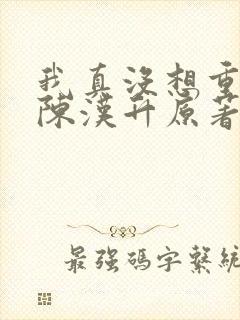 我真沒想重
陳漢升原著
最強碼字繫統